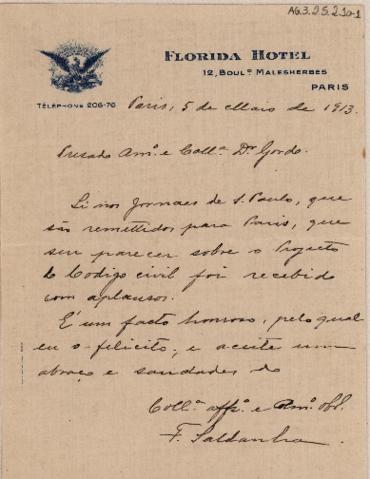 AG.3.2.5.2.30-1
FLORIDA HOTEL
12, BOULD MALESHERBES
PARIS
TÉLÉPHONE 206-76
Paris, 5 de Maio de 1913.
Presado Amo. e Colla. Dr Gordo.
Li nos Jornaes de S. Paulo, que
são remettidos para Paris, que
seu parecer sobre o Projecto
do Codigo civil foi recebido
com aplausos.
É um facto honroso, pelo qual
eu o felicito, e aceite um
abraço e saudades do
Colla. affo. e Amo. obr.
F. Saldanha